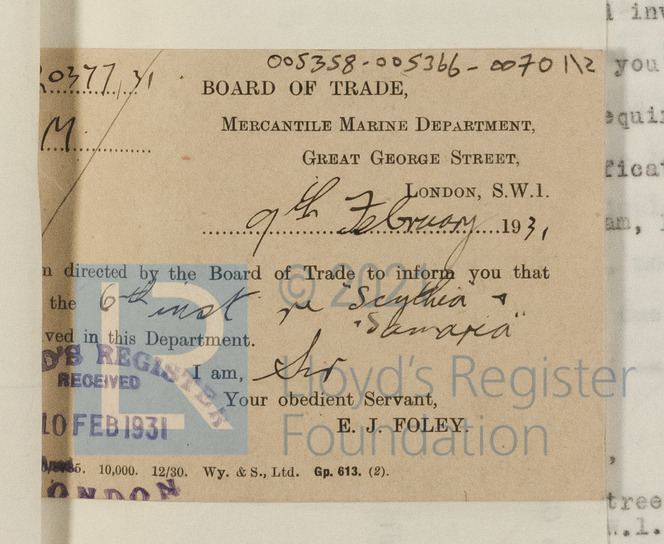 005358-005366-0070 1\2
20377/31
BOARD OF TRADE,
M
MERCANTILE MARINE DEPARTMENT,
GREAT GEORGE STREET,
LONDON, S.W.1.
9th February 1931
directed by the Board of Trade to inform you that
the 6th inst re "Scythia" +
"Samaria"
ved in this Department.
I am, Sir
Your obedient Servant,
E. J. FOLEY.
D'S REGISTER
RECEIVED
10 FEB 1931
LONDON
10,000. 12/30. Wy. & S., Ltd. Gp. 613. (2).
© 2021
Lloyd's Register
Foundation
LR
you
tree